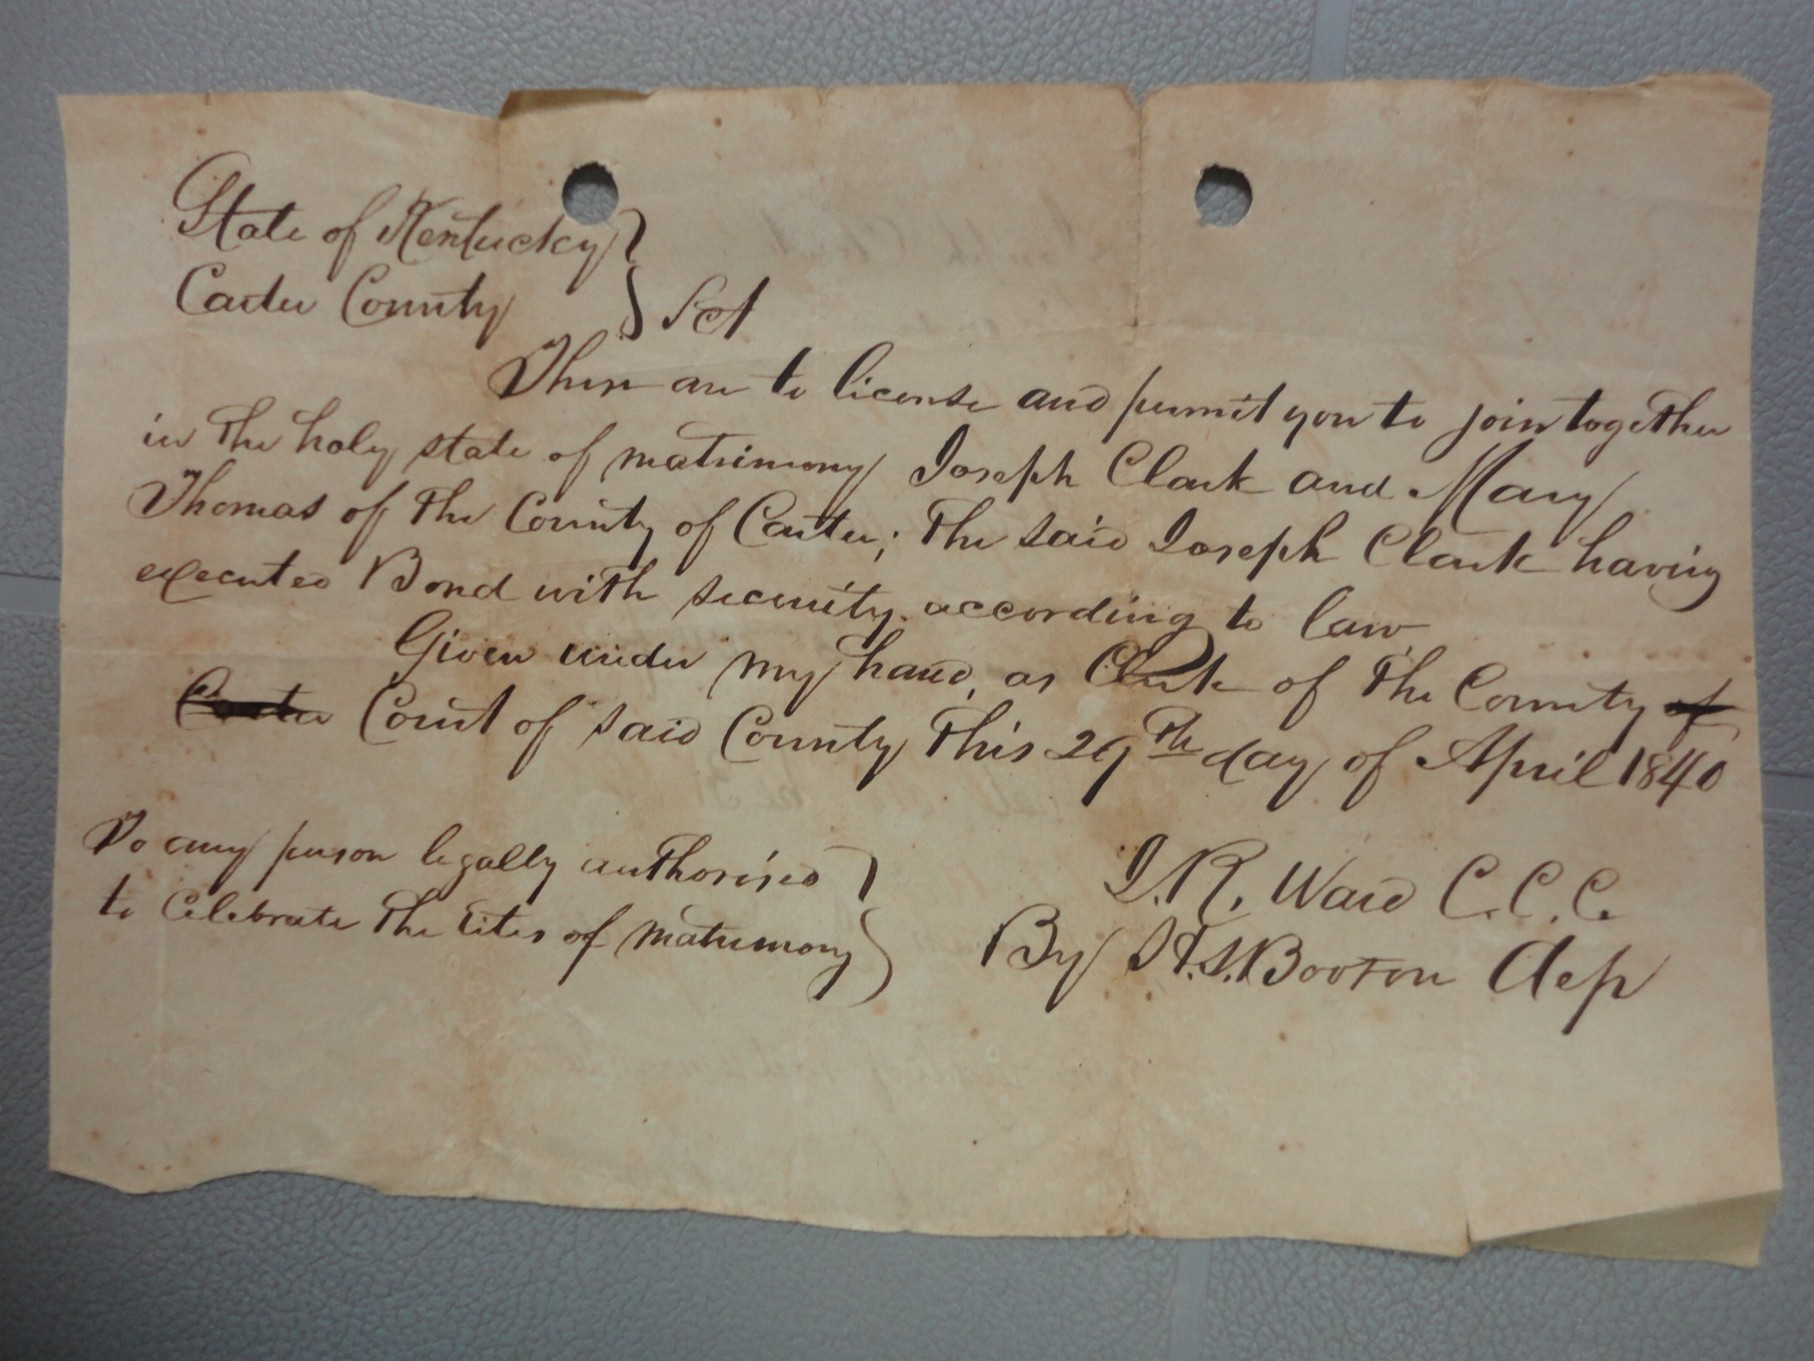 State of Kentucky }
Carter County } Sct
These are to license and permit you to join together
in the holy state of matrimony Joseph Clark and Mary
Thomas of the County of Carter; the said Joseph Clark having
executed Bond with security according to law
Given under my hand, as Clerk of the County of
Carter Court of said County this 29th day of April 1840
To any person legally authorised }
to Celebrate the rites of matrimony }
J. R. Ward C. C. C.
By Booton dep